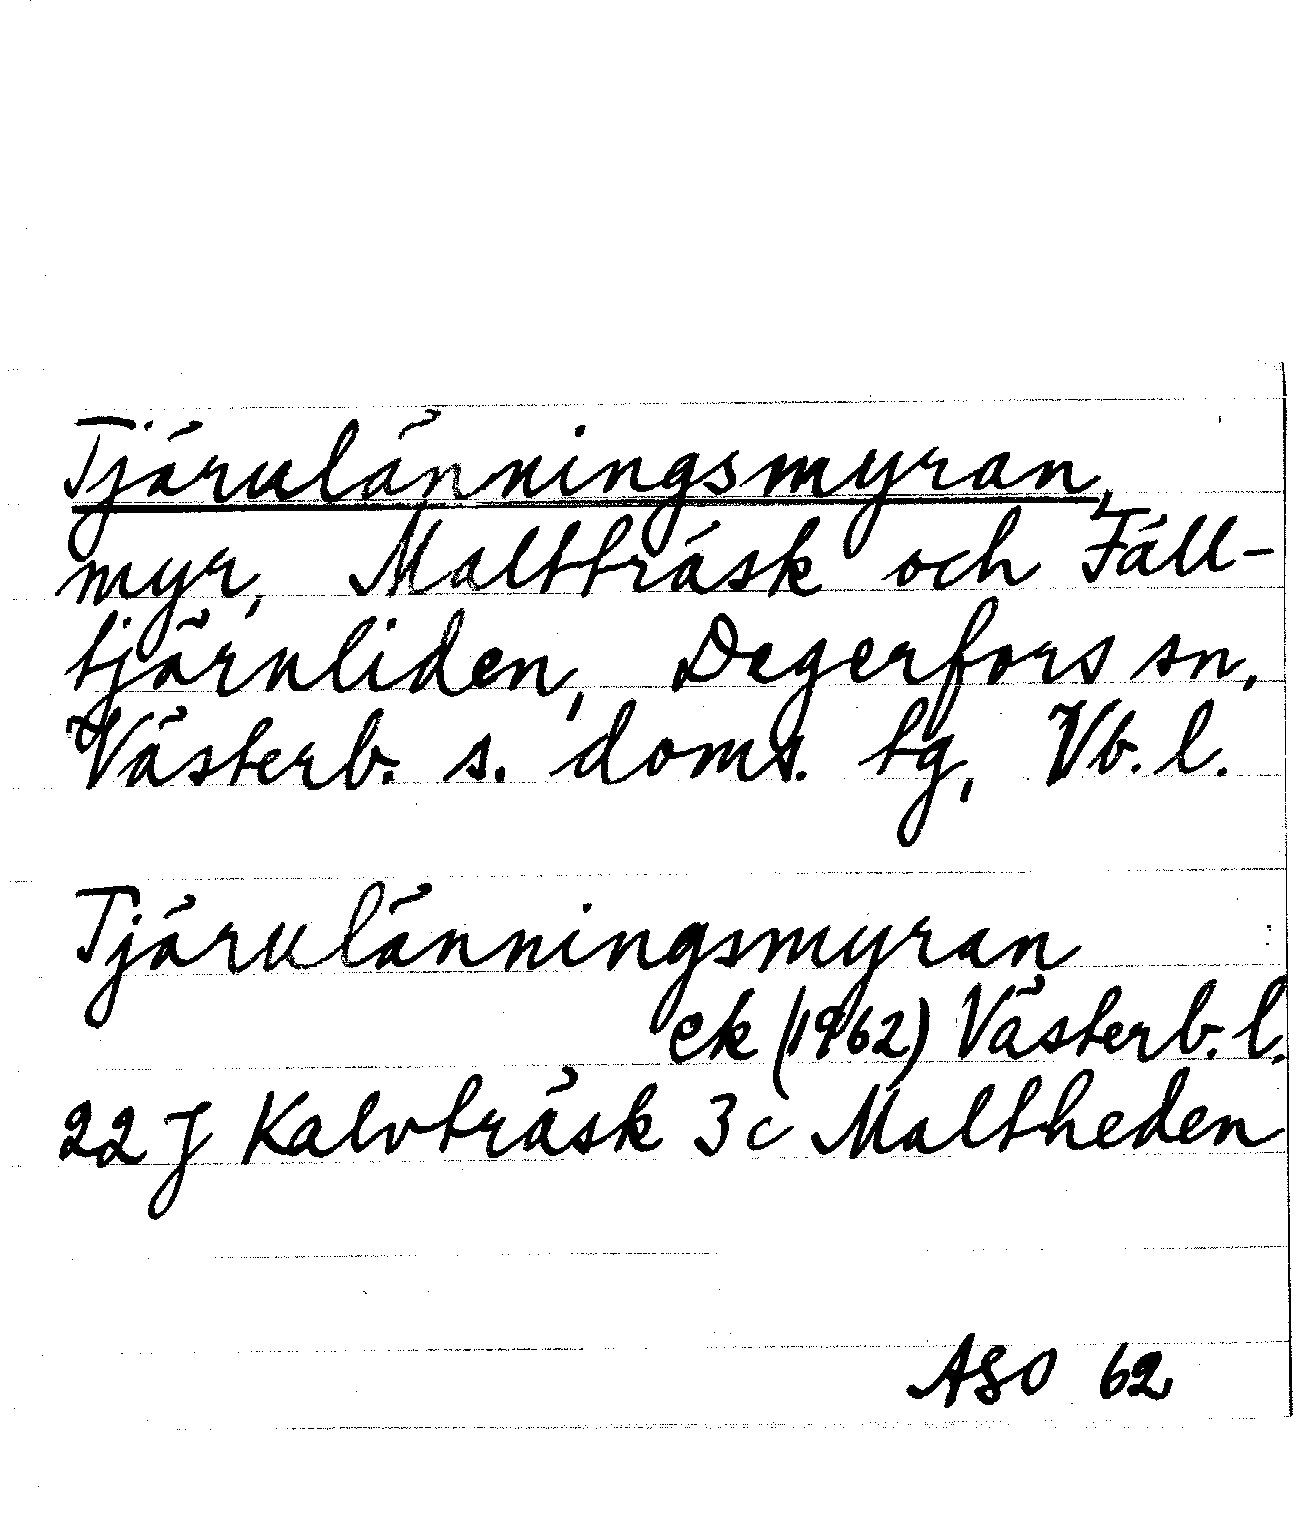 Tjärnlänningsmyran,
myr, Maltträsk och Fäll-
tjärnliden, Degerfors sn,
Västerb. s. doms. tg, Vb. l.
Tjärnlänningsmyran
ek (1962) Västerb. l.
22 J Kalvträsk 3 c Maltheden
ASO 62